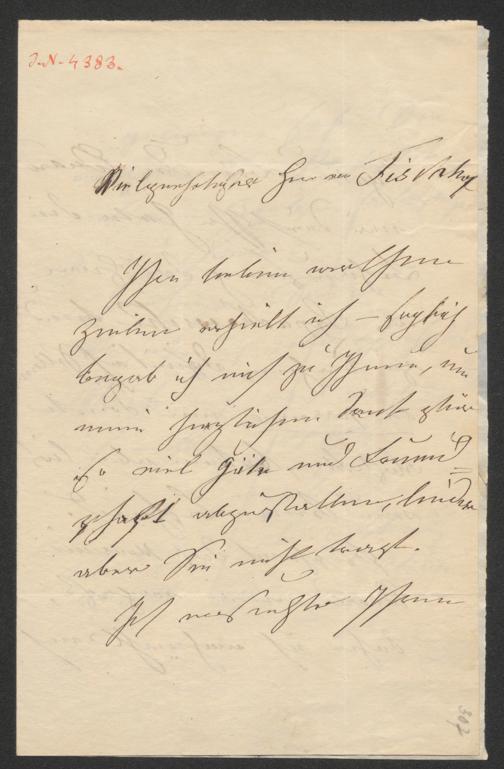 J.-N.-4383.
Vielgeschätzter Herr von Fischhof
Ihre lieben werthen
Zeilen erhielt ich – sogleich
begab ich mich zu Ihnen, um
meinen herzlichsten Dank für
so viel Güte und Freund=
schaft abzustatten, leider
aber Sie nicht traf.
Ich Ihnen
302